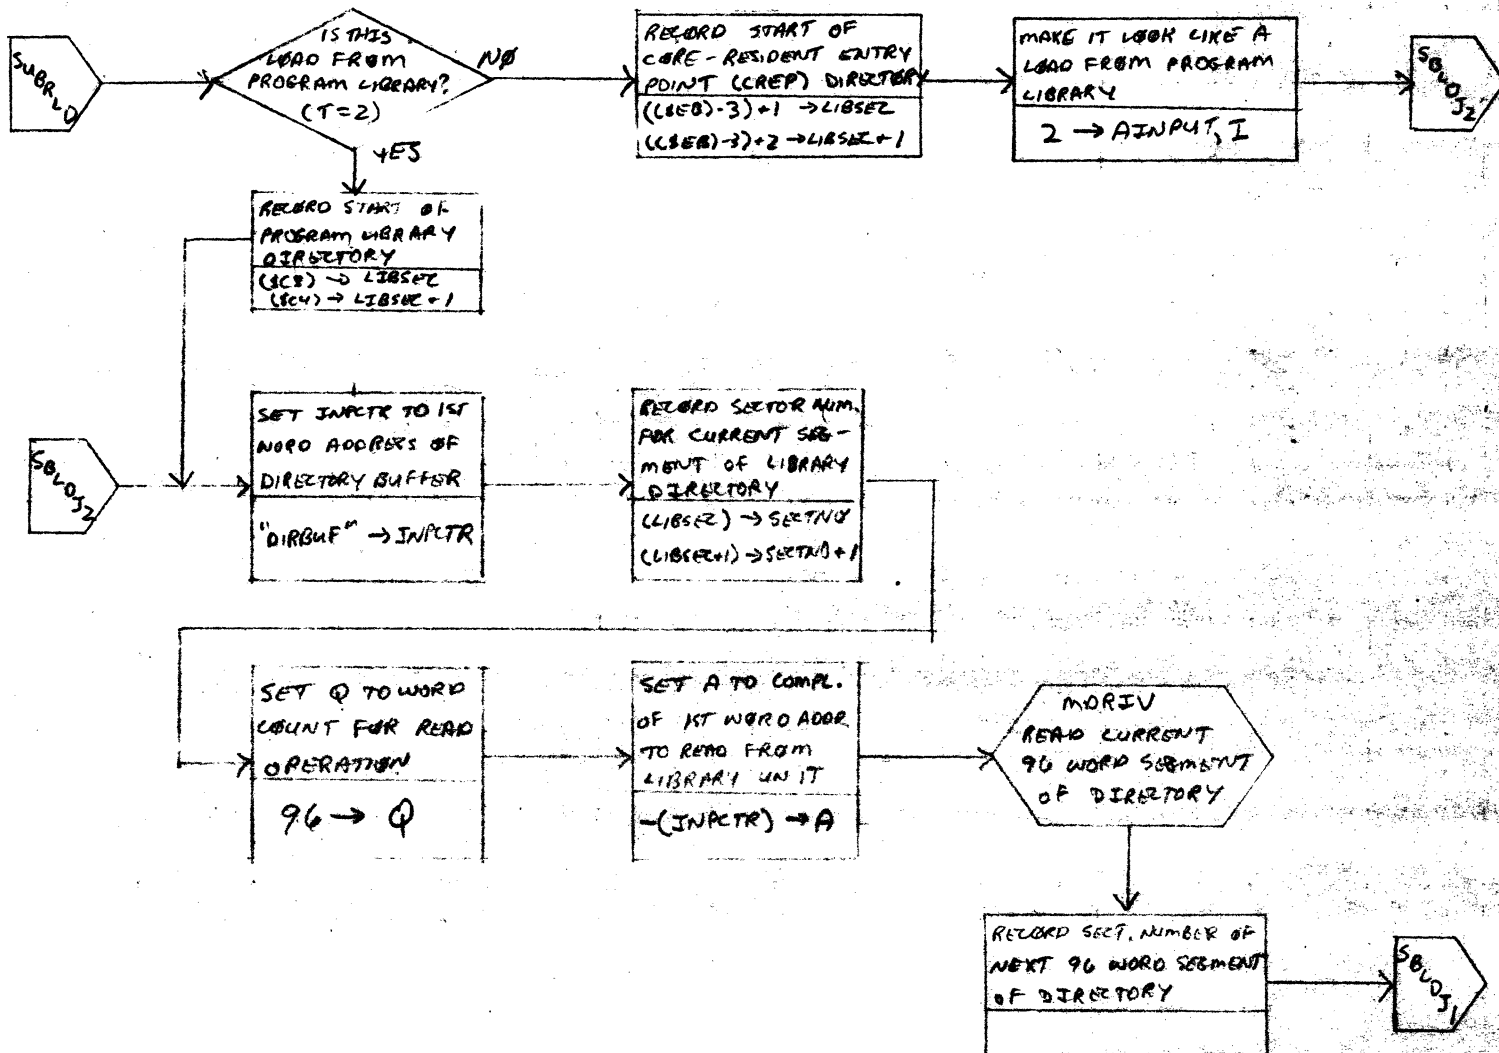 SUBRLD
IS THIS
LØAD FRØM
PRØGRAM LIBRARY?
(T=2)
NØ
YES
RECØRD START ØF
CØRE-RESIDENT ENTRY
PØINT (CREP) DIRECTØRY
(($EB)-3)+1 → LIBSEC
(($EB)-3)+2 → LIBSEC+1
MAKE IT LØØK LIKE A
LØAD FRØM PRØGRAM
LIBRARY
2 → AINPUT, I
SBLDJ2
RECØRD START ØF
PRØGRAM LIBRARY
DIRECTØRY
($C3) → LIBSEC
($C4) → LIBSEC+1
SBLDJ2
SET INPCTR TO 1ST
WØRD ADDRESS ØF
DIRECTØRY BUFFER
"DIRBUF" → INPCTR
RECØRD SECTØR NUM.
FØR CURRENT SEG-
MENT ØF LIBRARY
DIRECTØRY
(LIBSEC) → SECTNØ
(LIBSEC+1) → SECTNØ+1
SET Q TØ WØRD
CØUNT FØR READ
ØPERATIØN
96 → Q
SET A TØ CØMPL.
ØF 1ST WØRD ADDR
TØ READ FRØM
LIBRARY UNIT
-(INPCTR) → A
MDRIV
READ CURRENT
96 WØRD SEGMENT
ØF DIRECTØRY
RECØRD SECT. NUMBER ØF
NEXT 96 WØRD SEGMENT
ØF DIRECTØRY
SBLDJ1